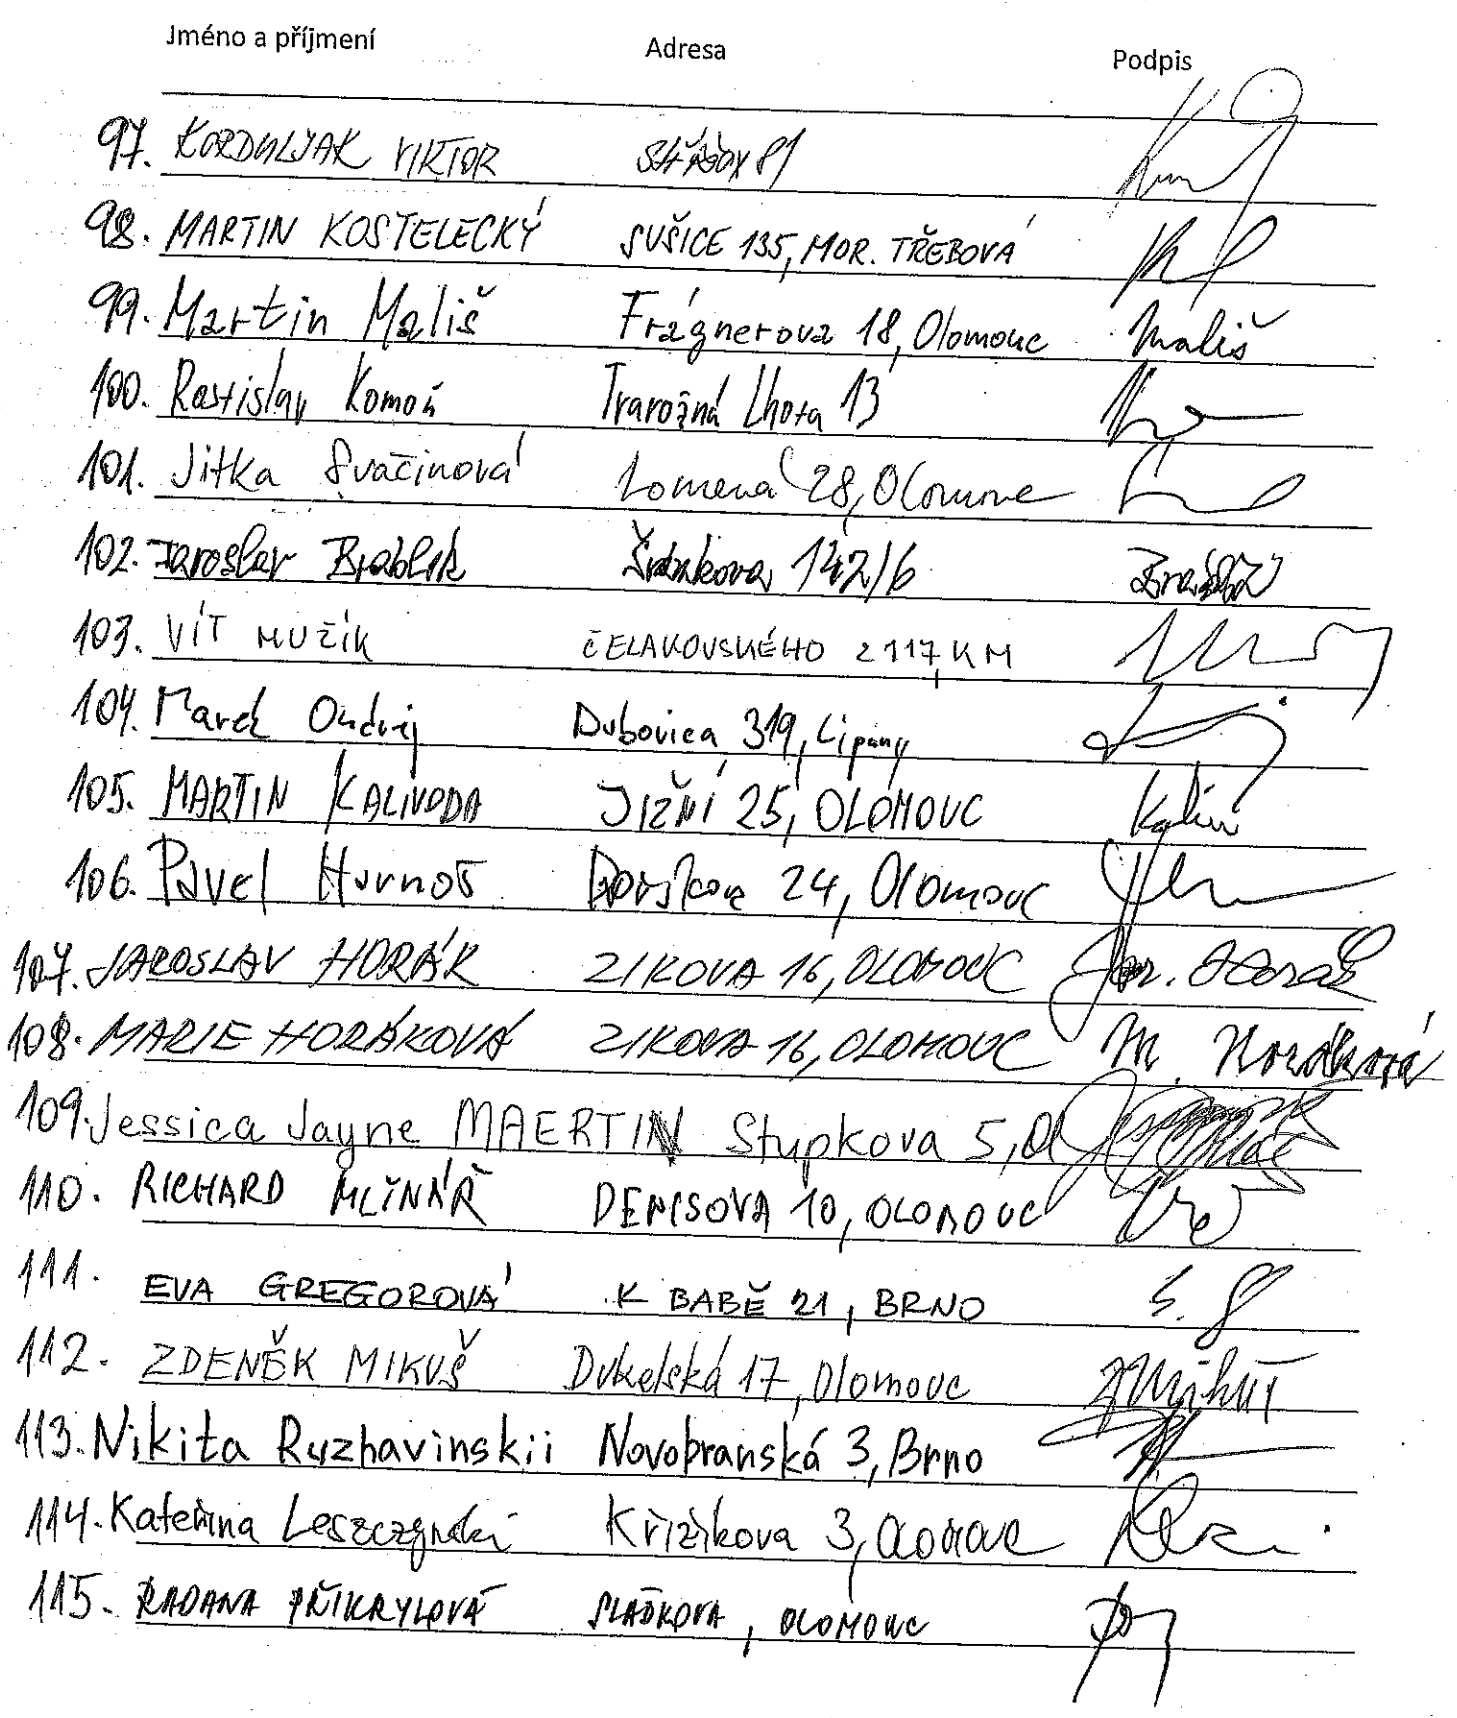 Jméno a příjmení Adresa Podpis
97. KORDULJAK VIKTOR 81
98. MARTIN KOSTELECKÝ SUŠICE 135, MOR. TŘEBOVÁ
99. Martin Mališ Frágnerova 18, Olomouc Mališ
100. Rostislav Komoň Tvarožná Lhota 13
101. Jitka Svačinová Lomená 28, Olomouc
102. Jaroslav Brablík 142/6
103. VÍT MUŽÍK ČELAKOVSKÉHO 2117, KM
104. Marek Ondrij Dubovica 319, Lipany
105. MARTIN KALIVODA JIŽNÍ 25, OLOMOUC
106. Pavel Hurnoš 24, Olomouc
107. JAROSLAV HORÁK ZIKOVA 16, OLOMOUC Jar. Horák
108. MARIE HORÁKOVÁ ZIKOVA 16, OLOMOUC M. Horáková
109. Jessica Jayne MAERTIN Stupkova 5, Ol
110. RICHARD MLÍNÁŘ DENISOVA 10, OLOMOUC
111. EVA GREGOROVÁ K BABĚ 21, BRNO
112. ZDENĚK MIKUŠ Dukelská 17, Olomouc ZMikuš
113. Nikita Ruzhavinskii Novobranská 3, Brno
114. Kateřina Leszczynski Křižíkova 3, Olomouc
115. RADANA PŘIKRYLOVÁ SLÁDKOVA, OLOMOUC